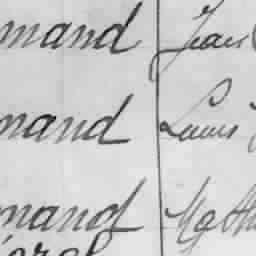 mand Jean
mand Louis
mand Math